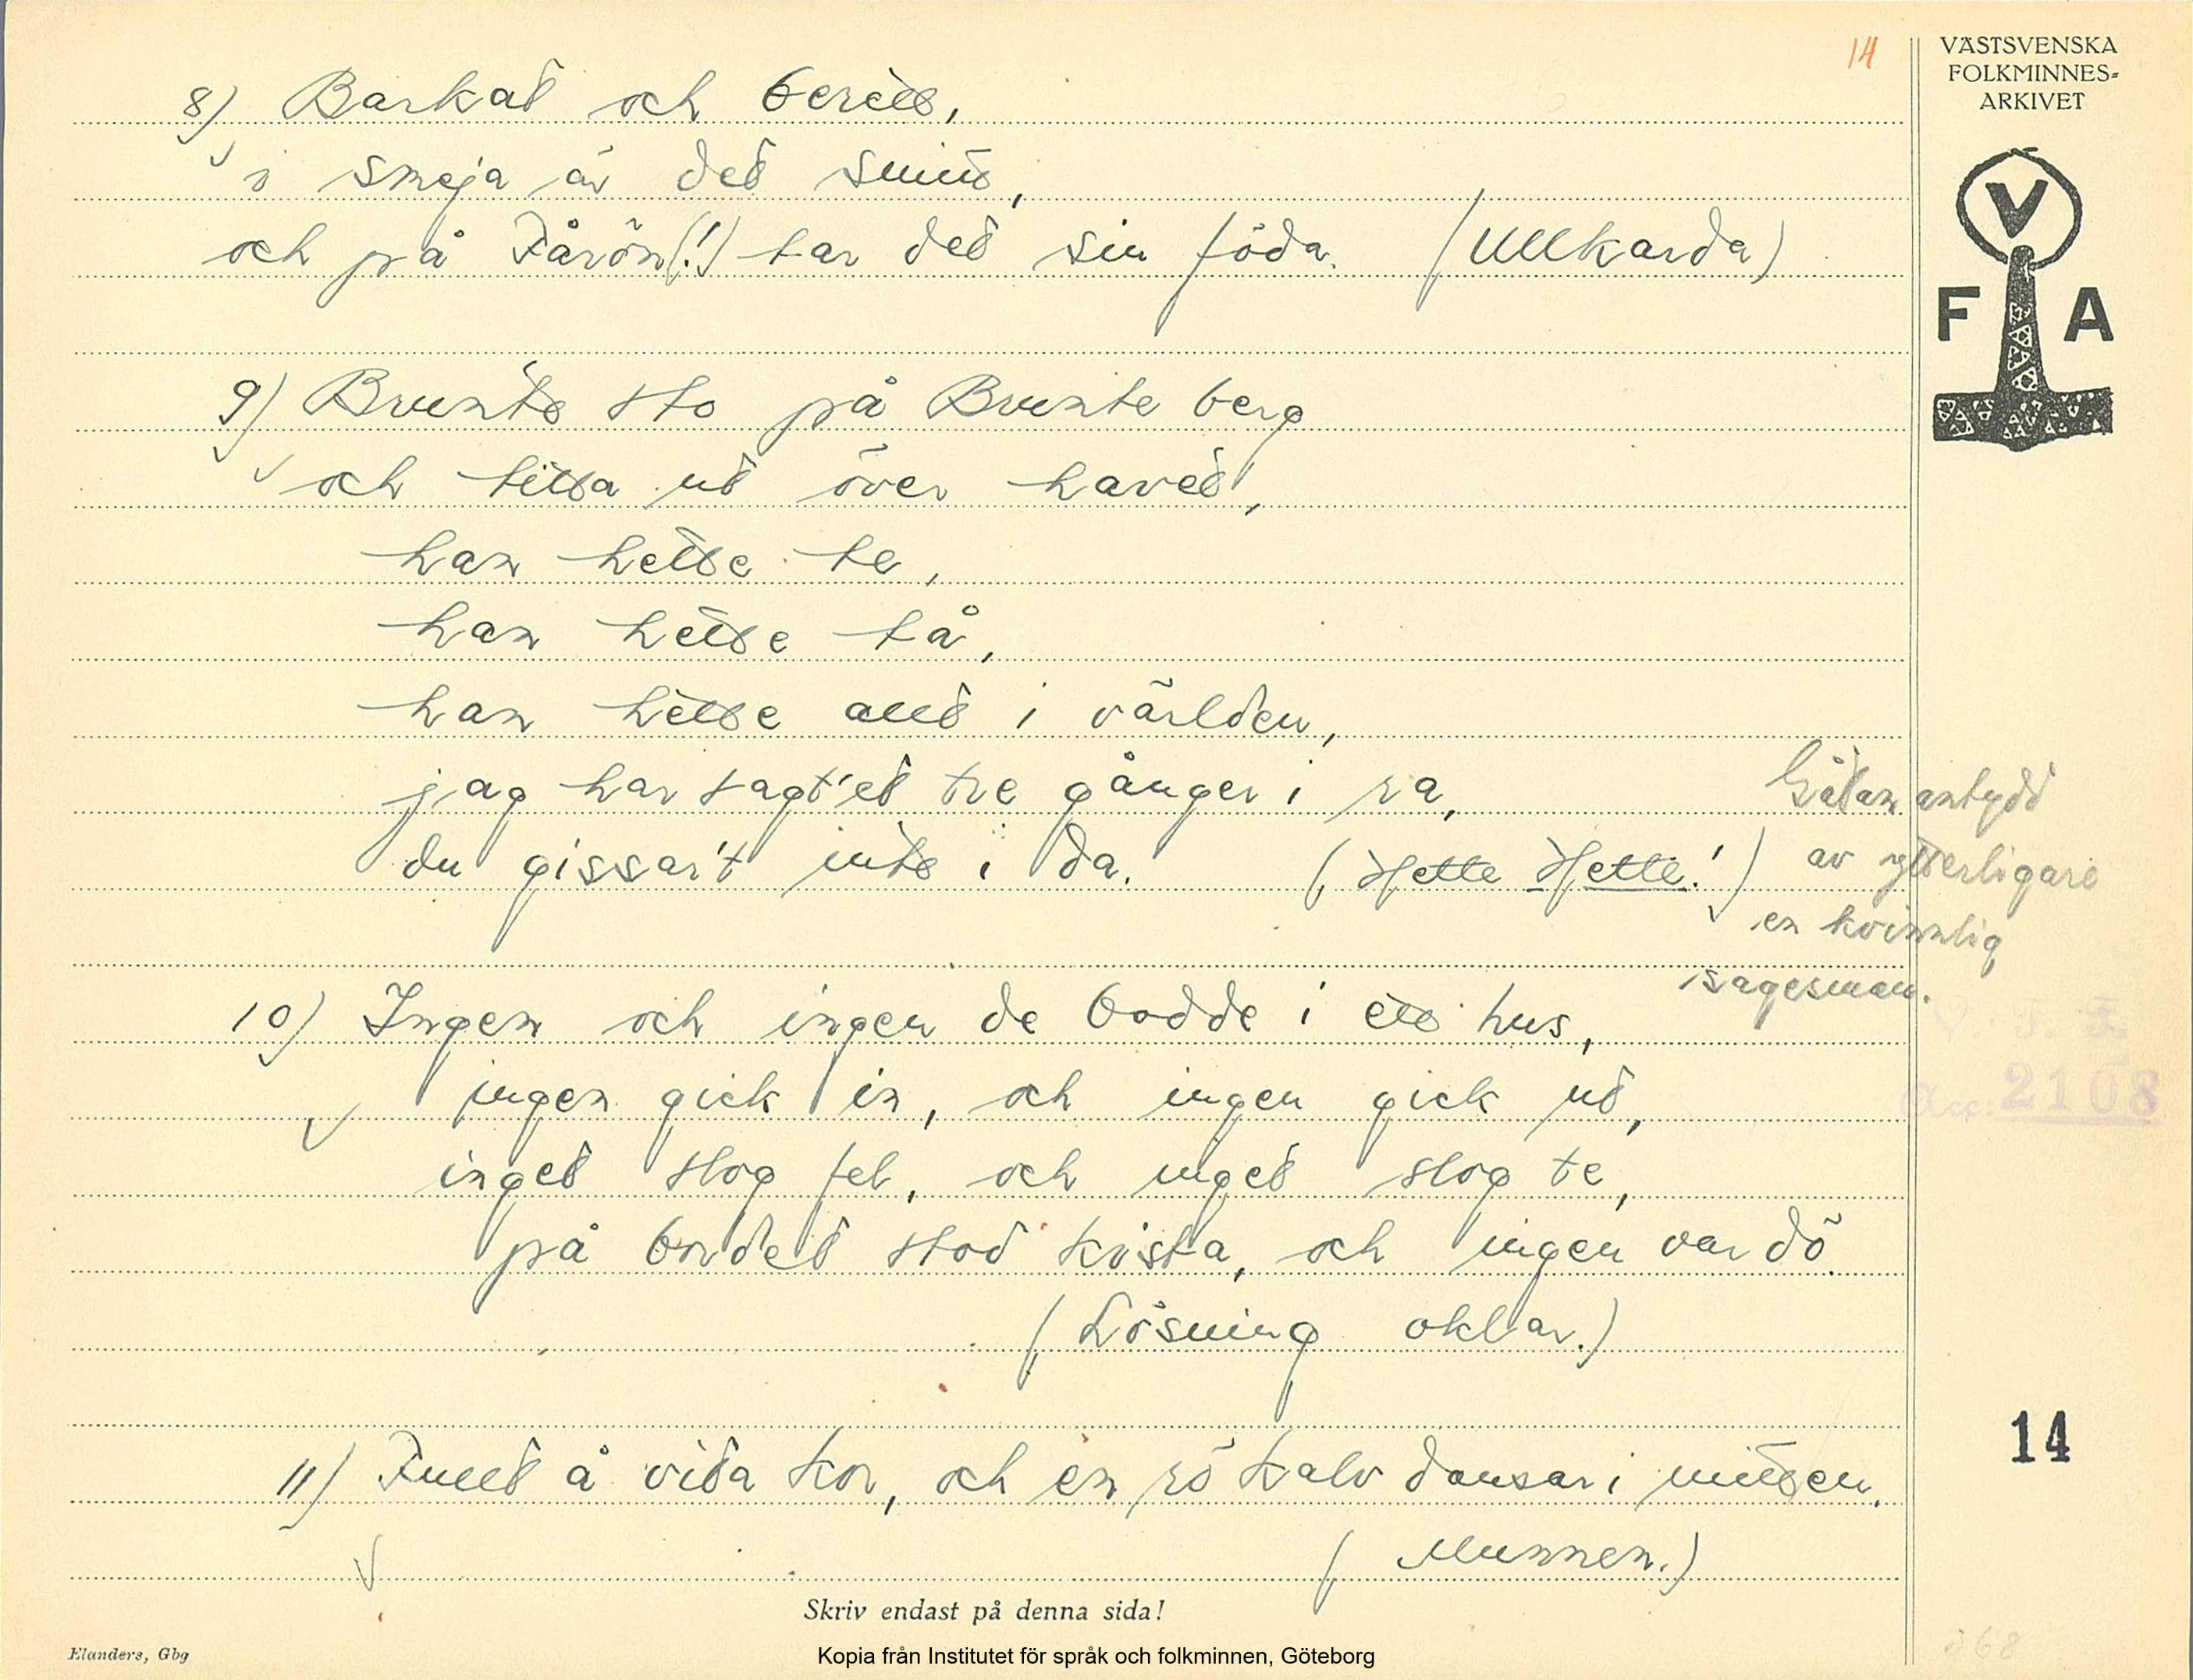 14
VÄSTSVENSKA
FOLKMINNES-
ARKIVET
V
F A
8) Barkat och berett,
i smeja är det smitt,
och på Fårön(!) tar det sin föda. (Ullkarda)
9) Brunte sto på Brunte berg
och titta ut över havet,
han hette te,
han hette tå,
han hette allt i världen,
jag har sagt'et tre gånger i ra,
du gissar't inte i da. (Hette Hette!)
Gåtan antydd
av ytterligare
en kvinnlig
sagesman.
10) Ingen och ingen de bodde i ett hus,
ingen gick in, och ingen gick ut,
inget slog fel, och inget slog te,
på bordet stod kista, och ingen var dö.
(Lösning oklar.)
V. F. F.
Acc. 2108
14
11) Fullt å vita kor, och en rö kalv dansar i mitten.
(Munnen.)
Skriv endast på denna sida!
Elanders, Gbg
Kopia från Institutet för språk och folkminnen, Göteborg
368